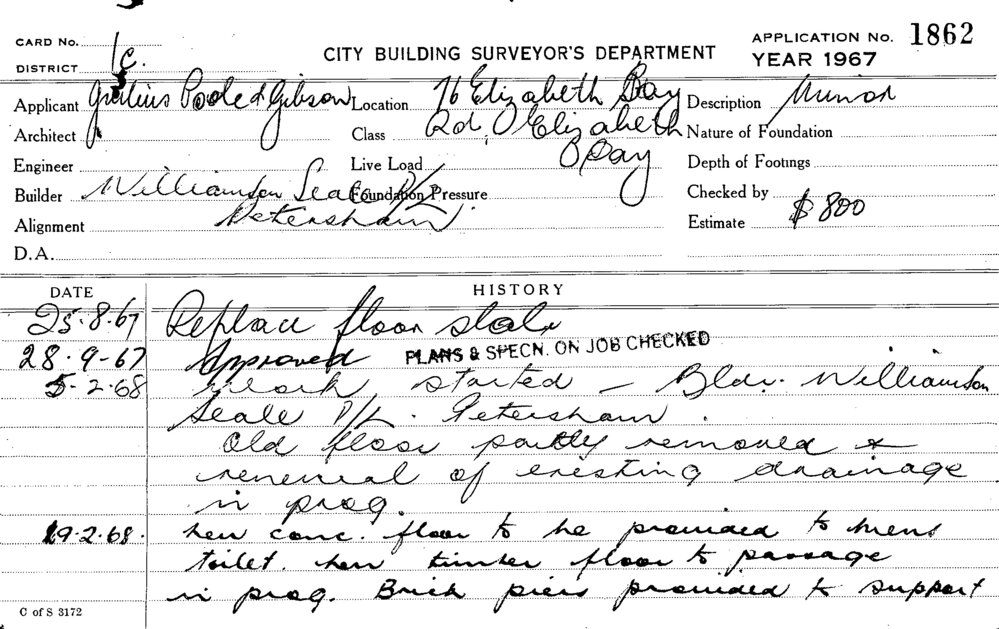 CARD No. 1c.
DISTRICT
CITY BUILDING SURVEYOR'S DEPARTMENT
APPLICATION No. 1862
YEAR 1967
Applicant Poole & Gibson
Location 76 Elizabeth Bay
Rd, Elizabeth
Bay
Description Minor
Architect
Class
Nature of Foundation
Engineer
Live Load
Depth of Footings
Builder Williamson Seale P/L
Petersham
Foundation Pressure
Checked by
Alignment
Estimate $800
D.A.
DATE HISTORY
25.8.67 Replace floor slab
28.9-67 Approved PLANS & SPECN. ON JOB CHECKED
5.2.68 Work started – Bldr. Williamson
Seale P/L. Petersham.
Old floor partly removed &
renewal of existing drainage
in prog.
19.2.68. New conc. floor to be provided to mens
toilet. New timber floor to passage
in prog. Brick piers provided to support
C of S 3172